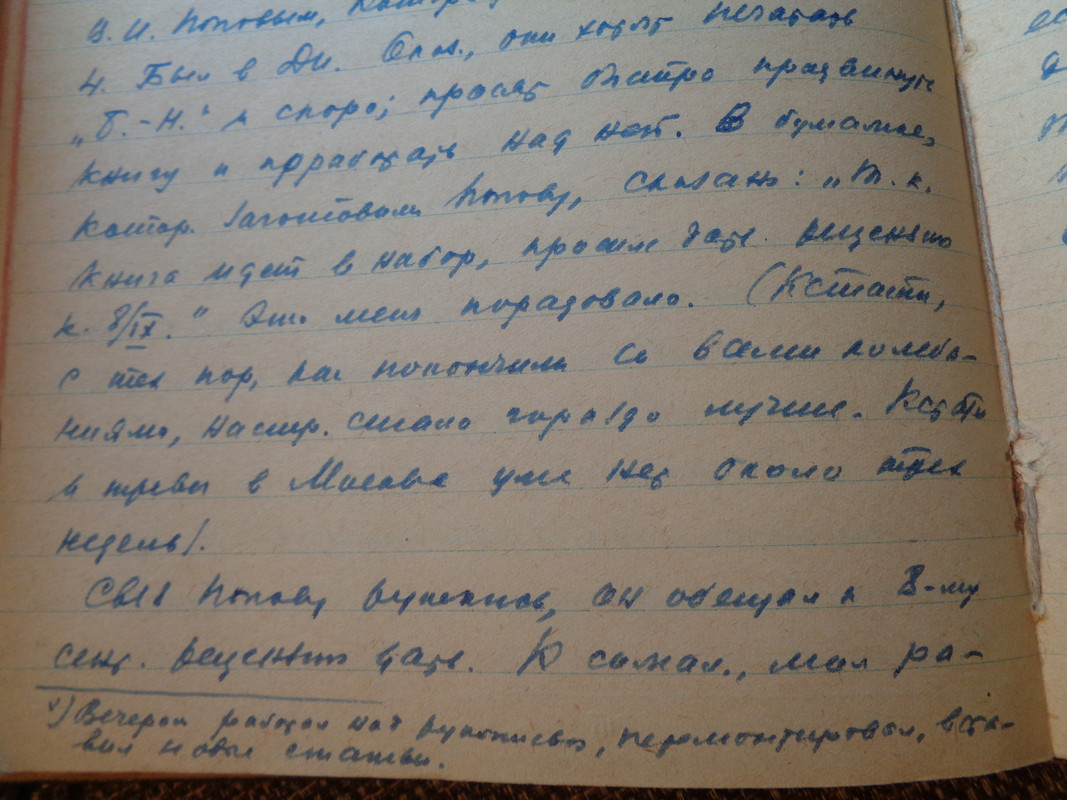 В. И. Поповым,
4. Был в Ди. они хотят печатать
„Б.-Н." и скоро; просят быстро продвинуть
книгу и поработать над ней. В бумажке,
котор. заготовили Попову, сказано: „Т. к.
книга идет в набор, просим дать рецензию
к 8/IX." Это меня порадовало. (Кстати,
с тех пор, как покончили со всеми колеба-
ниями, настр. стало гораздо лучше. Кстати
и тревог в Москве уже нет около трех
недель).
Свез Попову рукопись, он обещал к 8-му
сент. рецензию дать. К сожал., мал ра-
х) Вечером работал над рукописью, перемонтировал, вста-
вил новые статьи.